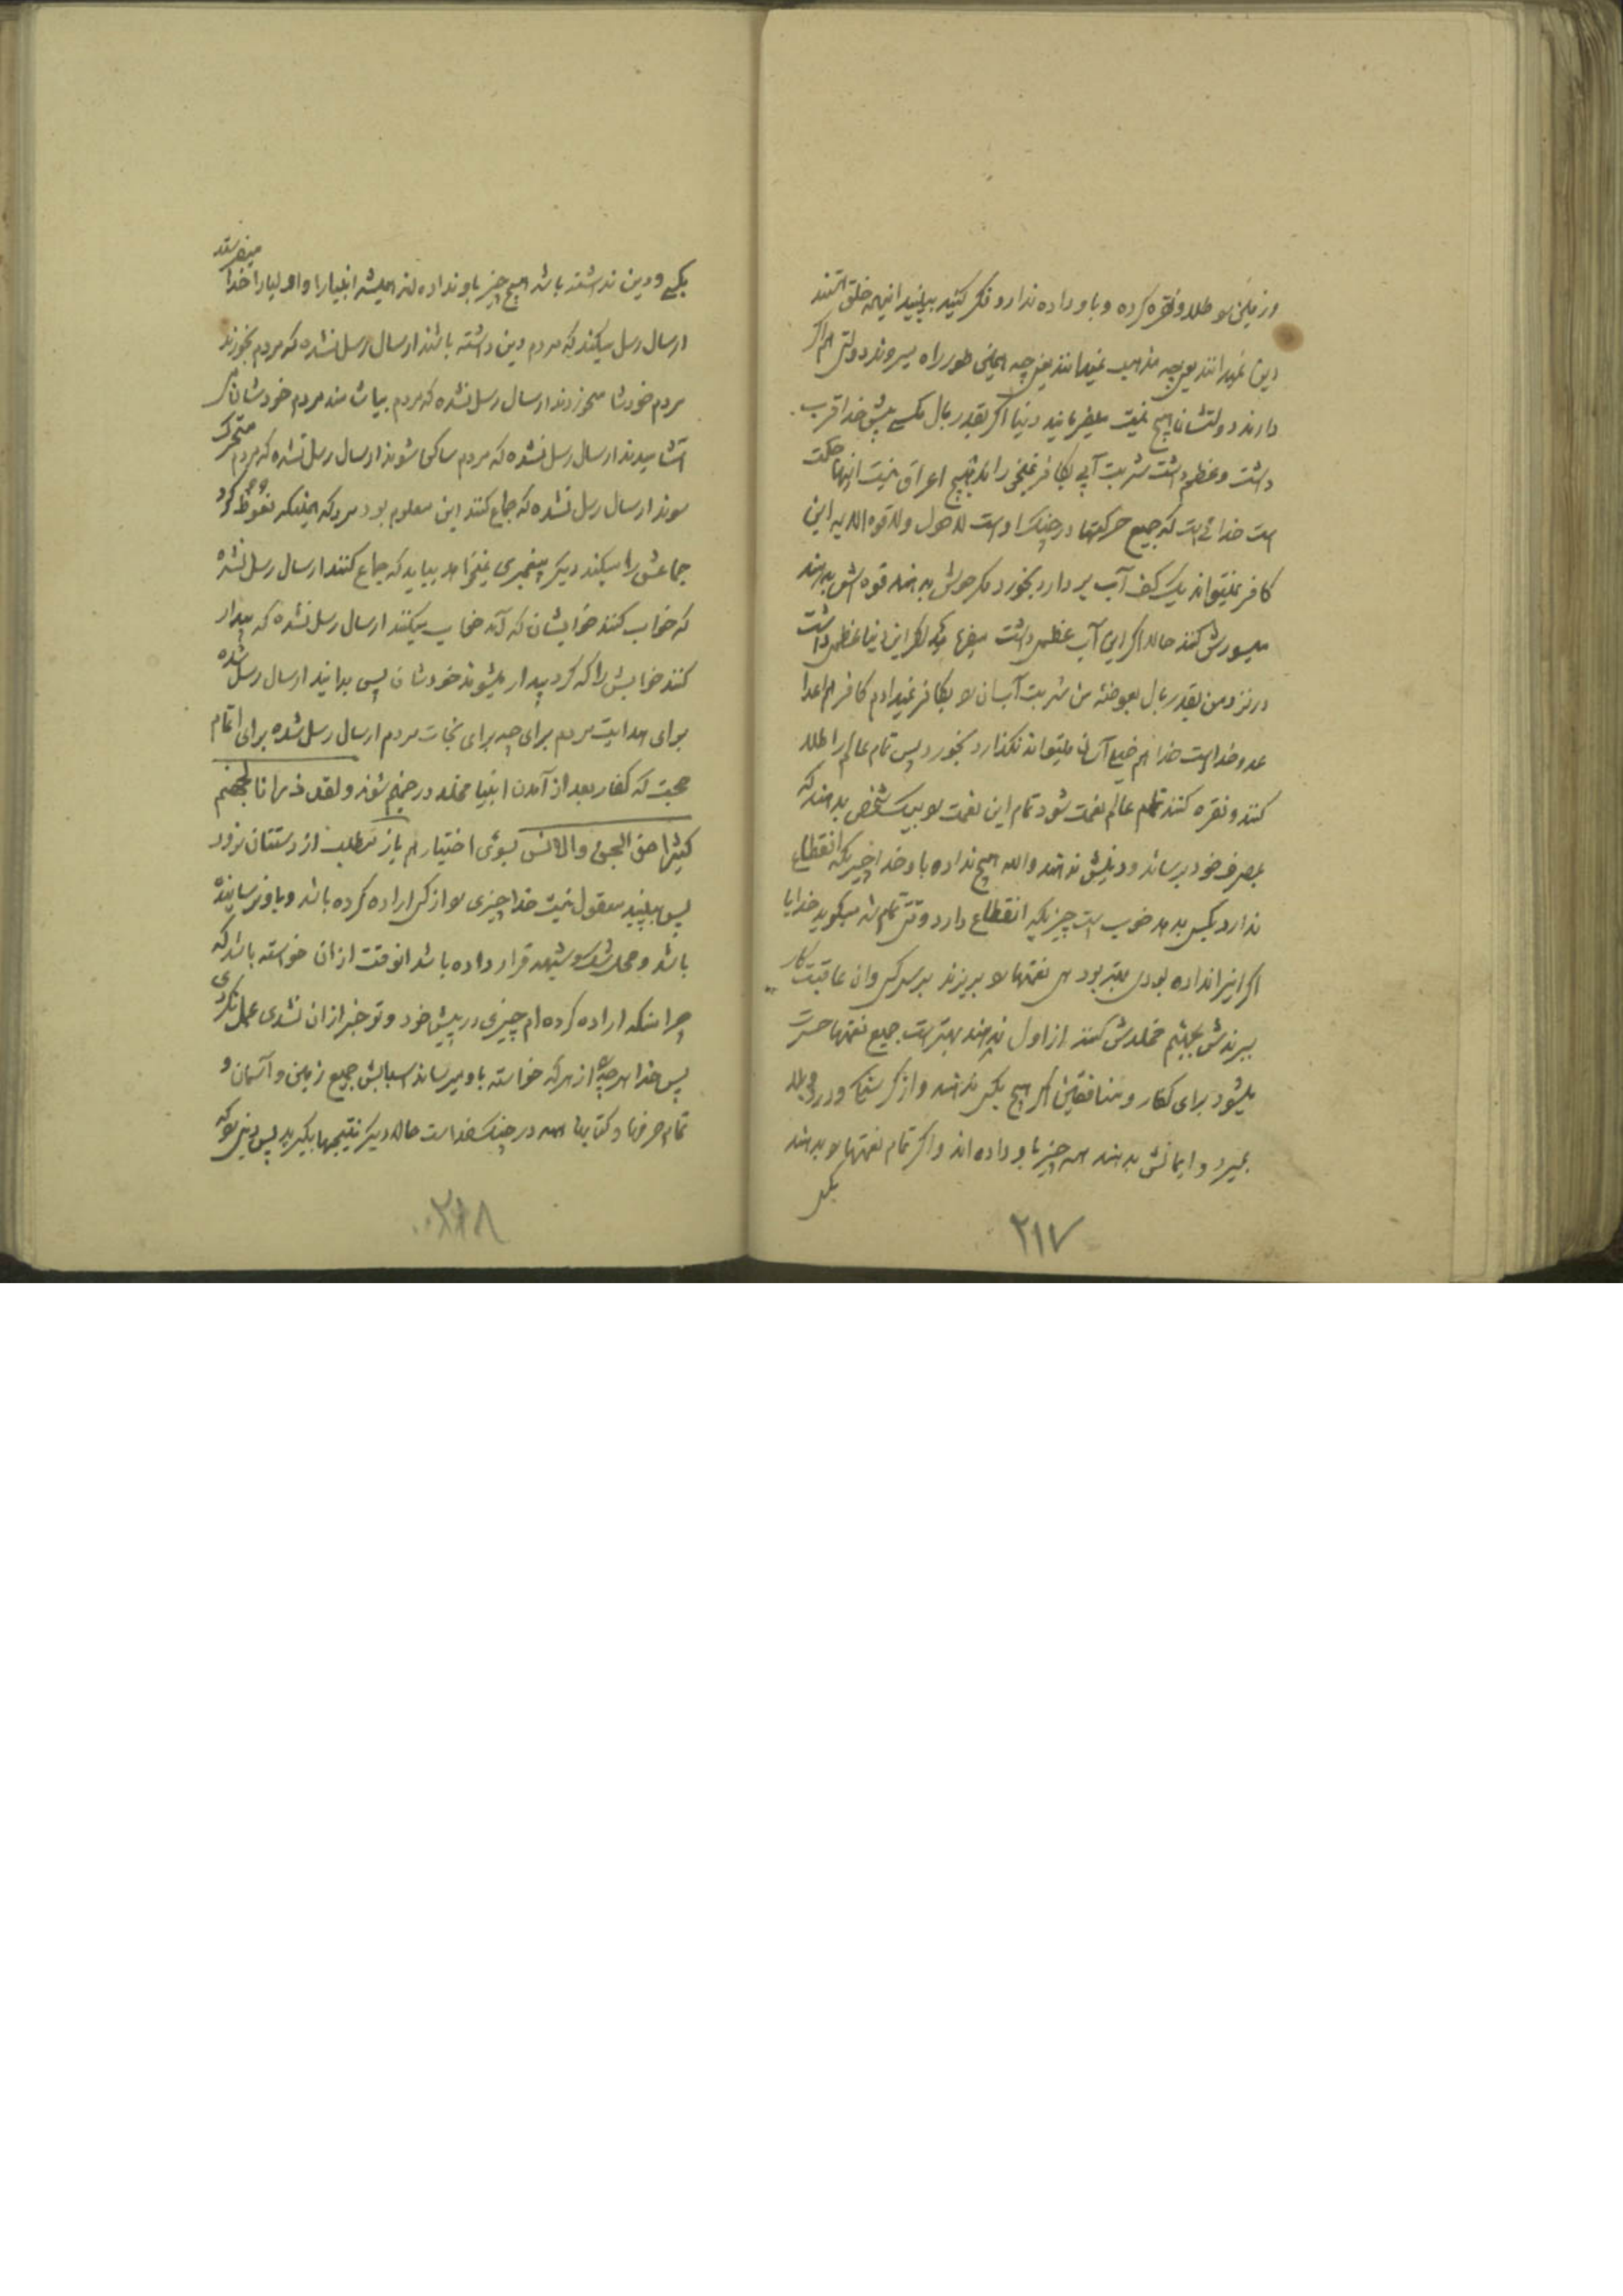 و زمین رو طلا و نقره کرده و باو داده ندارد فکر کنید ببینید اینهمه خلق هستند
دین نمیدانند یعنی چه مذهب نمیدانند یعنی چه همین طور راه میروند دولتی هم اگر
دارند دولتشان هیچ نیست میفرمایند دنیا اگر بقدر بال مگسی پیش خدا قرب
داشت و عظم داشت شربت آبی بکافر نمیخوراند هیچ اغراق نیست اینها حکمت
است خدائی است که جمیع حرکتها در چنگ اوست لا حول و لا قوه الا به این
کافر نمیتواند یک کف آب بردارد بخورد مگر حولش بدهند قوه اش بدهند
میسورش کنند حالا اگر این آب عظمی داشت میفرماید اگر این دنیا عظمی داشت
در نزد من بقدر بال بعوضه من شربت آب آن رو بکافر نمیدادم کافر هم اعدا
عدو خداست خدا هم خیلی آسان میتواند نگذارد بخورد پس تمام عالم را طلا
کنند و نقره کنند تمام عالم نعمت شود تمام این نعمت رو بیک شخص بدهند که
بمصرف خود برساند و دینش ندهند والله هیچ نداده باو خدا چیزیکه انقطاع
ندارد بکس بدهد خوب است چیزیکه انقطاع دارد وقتی تمام شد میگوید خدایا
اگر اینرا نداده بودی بهتر بود این نعمتها رو بریزند بر سر کسی و آن عاقبت کار
ببرندش بجهنم مخلدش کنند از اول ندهند بهتر است جمیع نعمتها حسرت
میشود برای کفار و منافقین اگر هیچ بکس ندهند و از گرسنگی و درد و بلا
بمیرد و ایمانش بدهند همه چیز باو داده اند و اگر تمام نعمتها رو بدهند
بکسی
۲۱۷
بکسی و دین نداشته باشد هیچ چیز باو نداده اند همیشه انبیا را و اولیا را خدا میفرستد
ارسال رسل میکند که مردم دین داشته باشند ارسال رسل نشده که مردم بخورند
مردم خودشان میخوردند ارسال رسل نشده که مردم بیاشامند مردم خودشان
آشامیدند ارسال رسل نشده که مردم ساکن شوند ارسال رسل نشده که مردم متحرک
شوند ارسال رسل نشده که جماع کنند این معلوم بود مرد که همینکه نعوظ کرد
جماعش را میکند دیگر پیغمبری نمیخواهد بیاید که جماع کنند ارسال رسل نشده
که خواب کنند خوابشان که آمد خواب میکنند ارسال رسل نشده که بیدار
کنند خوابش را که کرد بیدار میشوند خودشان پس بدانید ارسال رسل شده
برای هدایت مردم برای چه برای نجات مردم ارسال رسل شده برای اتمام
حجت که کفار بعد از آمدن انبیا مخلد در جهنم شوند و لقد ذرانا لجهنم
کثیرا من الجن والانس بسوی اختیار هم باز مطلب از دستتان نرود
پس ببینید معقول نیست خدا چیزی رو از کسی اراده کرده باشد و باو نرسانیده
باشد و محل شک و شبهه قرار داده باشد انوقت از آن خواسته باشد که
چرا منکه اراده کرده ام چیزی در پیش خود و تو خبر از آن نشدی عمل نکردی
پس خدا هر چه از هر که خواسته باو میرساند اسبابش جمیع زمین و آسمان و
تمام حرفها و کتابها همه در چنگ خداست حالا دیگر نتیجهها بگیرید پس دینی رو که
۲۱۸